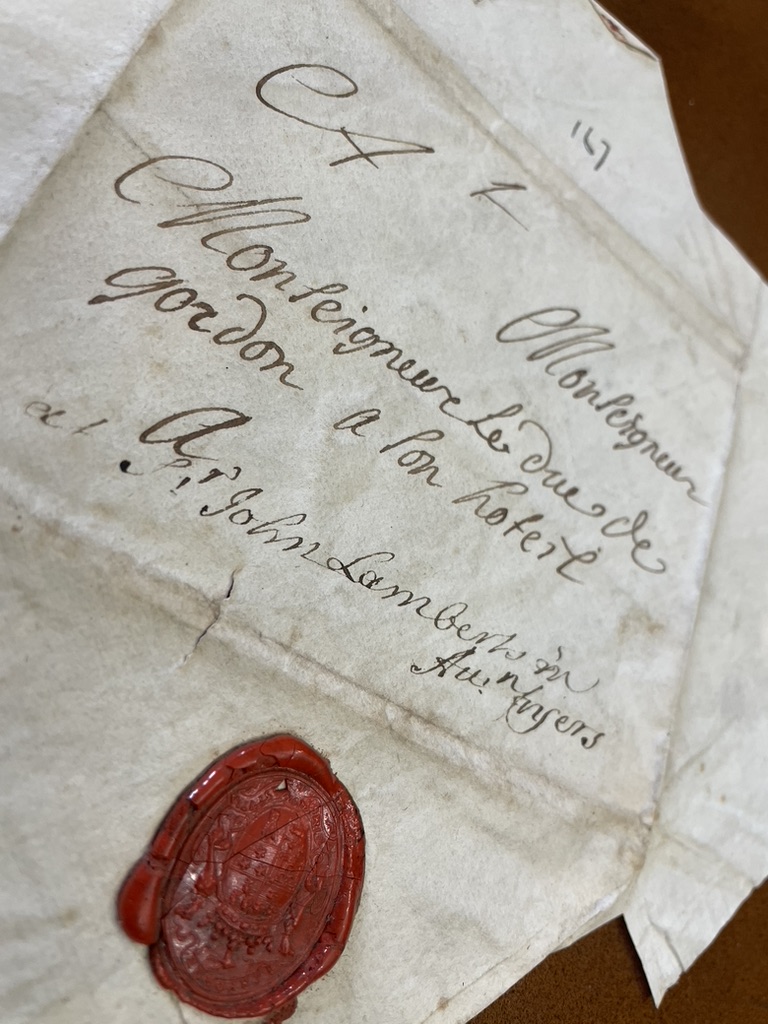 147
A
Monseigneur
Monseigneur Le duc de
gordon a son hoteil
A
at Sr John Lamberts in